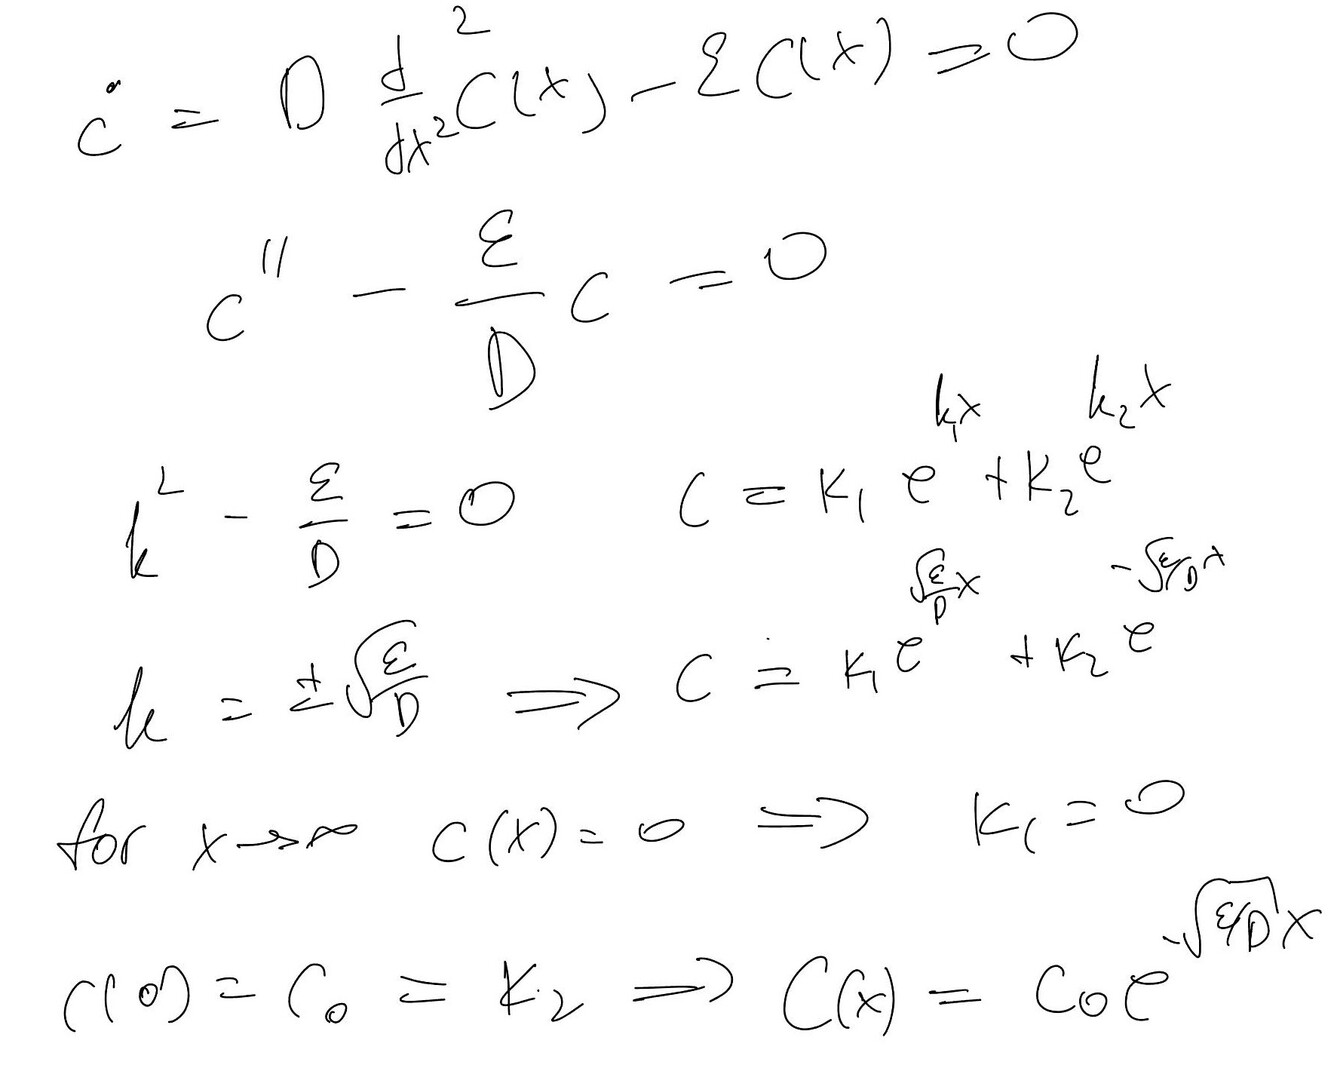 ċ = D d²/dx² C(x) - ε C(x) = 0
c'' - ε/D c = 0
k² - ε/D = 0    C = K₁ e^{k₁x} + K₂ e^{k₂x}
k = ±√(ε/D) ⟹ C = K₁ e^{√(ε/D) x} + K₂ e^{-√(ε/D) x}
for x → ∞ C(x) = 0 ⟹ K₁ = 0
C(0) = C₀ = K₂ ⟹ C(x) = C₀ e^{-√(ε/D) x}